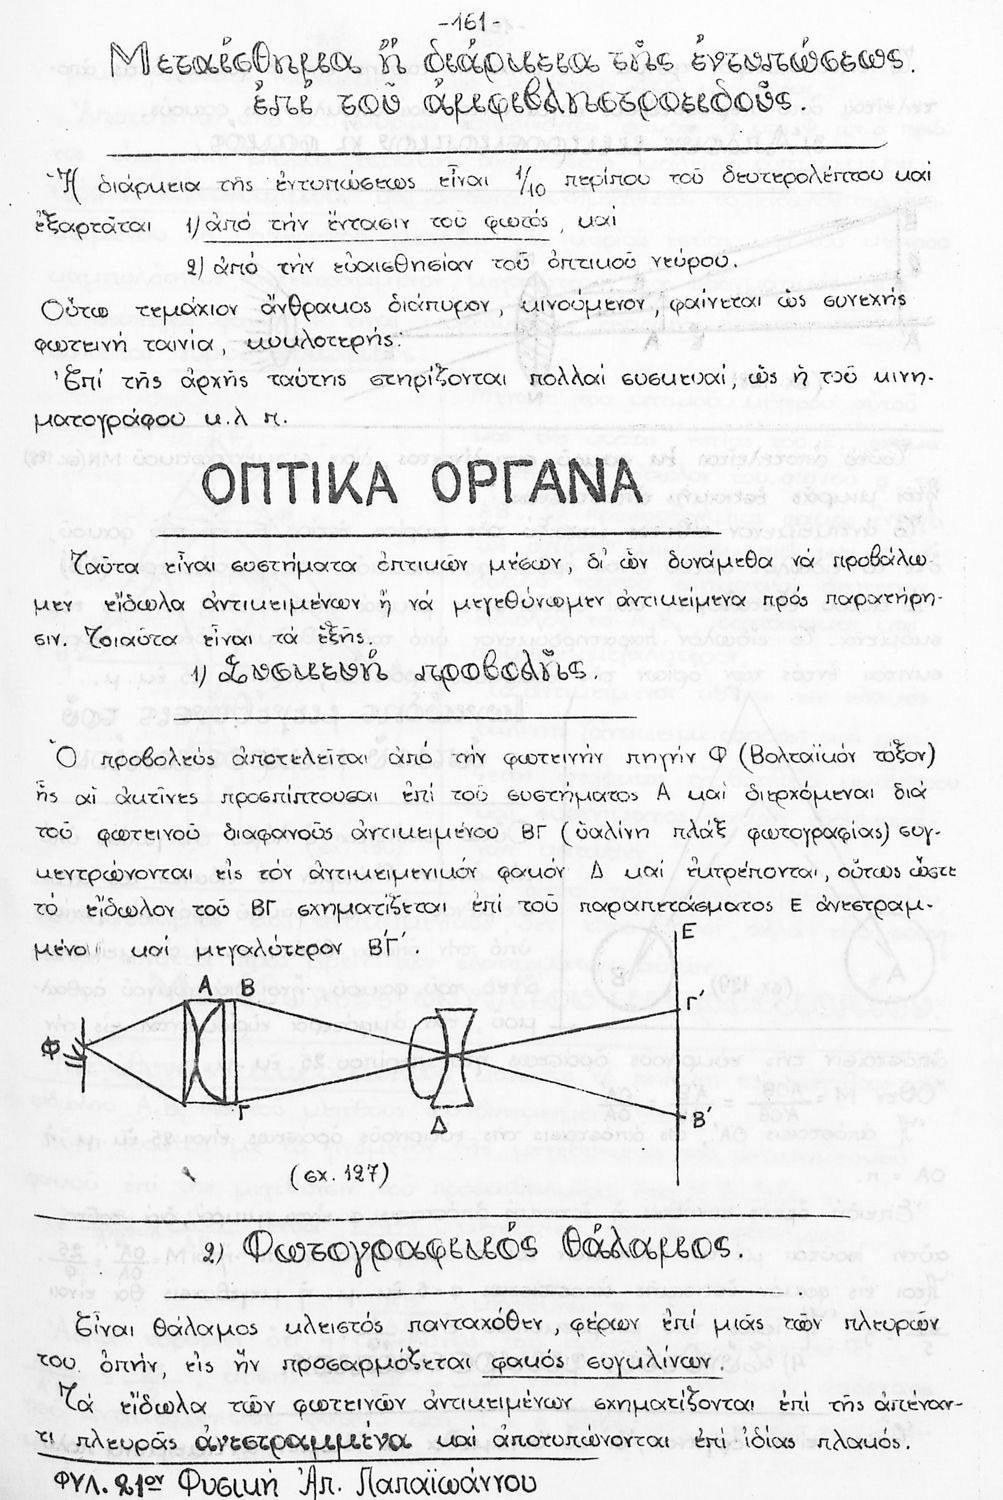 -161-
Μεταίσθημα ἤ διάρκεια τῆς ἐντυπώσεως.
ἐπί τοῦ ἀμφιβληστροειδοῦς.
Ἡ διάρκεια τῆς ἐντυπώσεως εἶναι 1/10 περίπου τοῦ δευτερολέπτου καί
ἐξαρτᾶται 1) ἀπό τήν ἔντασιν τοῦ φωτός, καί
2) ἀπό τήν εὐαισθησίαν τοῦ ὀπτικοῦ νεύρου.
Οὕτω τεμάχιον ἄνθρακος διάπυρον, κινούμενον, φαίνεται ὡς συνεχής
φωτεινή ταινία, κυκλοτερής.
Ἐπί τῆς ἀρχῆς ταύτης στηρίζονται πολλαί συσκευαί, ὡς ἡ τοῦ κινη-
ματογράφου κ.λ π.
ΟΠΤΙΚΑ ΟΡΓΑΝΑ
Ταῦτα εἶναι συστήματα ὀπτικῶν μέσων, δι' ὧν δυνάμεθα νά προβάλω-
μεν εἴδωλα ἀντικειμένων ἤ νά μεγεθύνωμεν ἀντικείμενα πρός παρατήρη-
σιν. Τοιαῦτα εἶναι τά ἑξῆς.
1) Συσκευή προβολῆς.
Ὁ προβολεύς ἀποτελεῖται ἀπό τήν φωτεινήν πηγήν Φ (Βολταϊκόν τόξον)
ἧς αἱ ἀκτῖνες προσπίπτουσαι ἐπί τοῦ συστήματος Α καί διερχόμεναι διά
τοῦ φωτεινοῦ διαφανοῦς ἀντικειμένου ΒΓ (ὑαλίνη πλάξ φωτογραφίας) συγ-
κεντρώνονται εἰς τόν ἀντικειμενικόν φακόν Δ καί ἐκτρέπονται, οὕτως ὥστε
τό εἴδωλον τοῦ ΒΓ σχηματίζεται ἐπί τοῦ παραπετάσματος Ε ἀνεστραμ-
μένο καί μεγαλύτερον Β΄Γ΄.
Ε
Α Β
Γ΄
Φ
Γ
Δ
Β΄
(σχ. 127)
2) Φωτογραφικός θάλαμος.
Εἶναι θάλαμος κλειστός πανταχόθεν, φέρων ἐπί μιᾶς τῶν πλευρῶν
του ὀπήν, εἰς ἥν προσαρμόζεται φακός συγκλίνων.
Τά εἴδωλα τῶν φωτεινῶν ἀντικειμένων σχηματίζονται ἐπί τῆς ἀπέναν-
τι πλευρᾶς ἀνεστραμμένα καί ἀποτυπώνονται ἐπί ἰδίας πλακός.
ΦΥΛ. 21ον Φυσική Ἀπ. Παπαϊωάννου